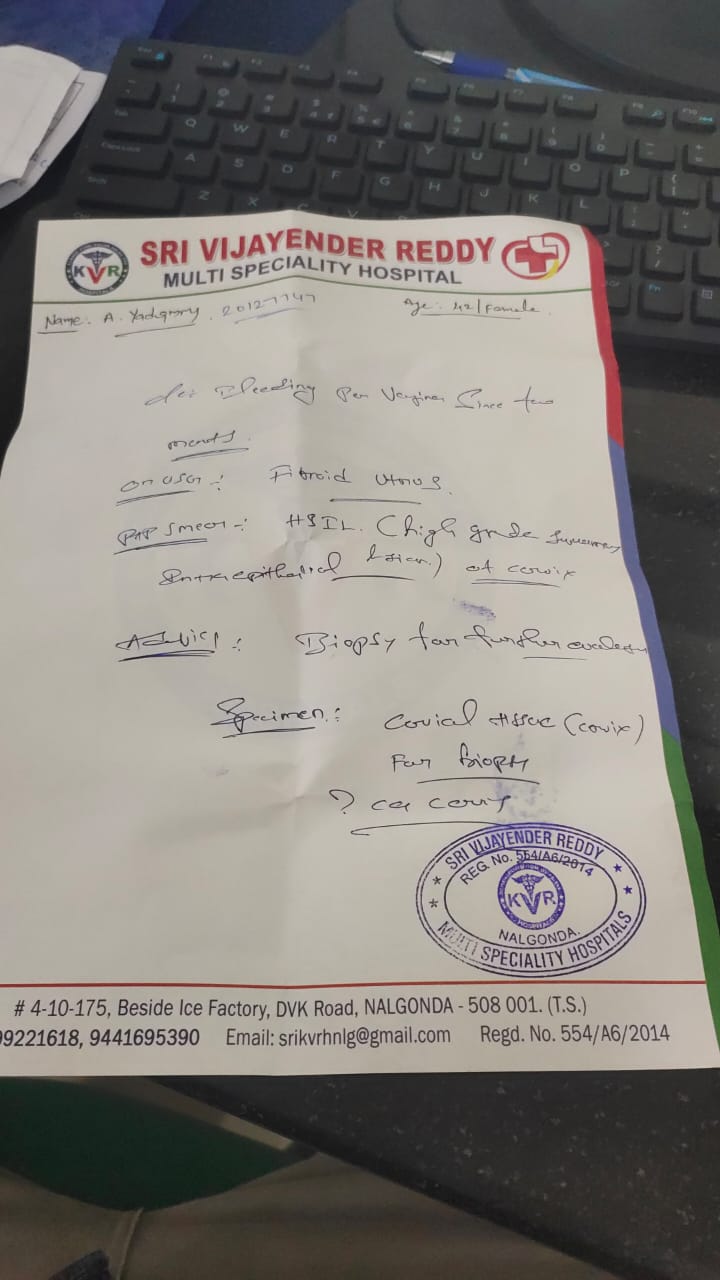 SRI VIJAYENDER REDDY
KVR
MULTI SPECIALITY HOSPITAL
Name: A. Yadgmry. 20127747
Age: 42/Female.
Bleeding Per Vagina Since two
on USG :- Fibroid Utrus.
PAP Smear :- HSIL. (high grade
Intraepithelial lesion) of cervix
Advice : Biopsy for further
Specimen : tissue (covix)
For Biopsy
? ca
SRI VIJAYENDER REDDY
REG. No. 554/A6/2014
KVR
NALGONDA.
MULTI SPECIALITY HOSPITALS
# 4-10-175, Beside Ice Factory, DVK Road, NALGONDA - 508 001. (T.S.)
99221618, 9441695390 Email: srikvrhnlg@gmail.com Regd. No. 554/A6/2014